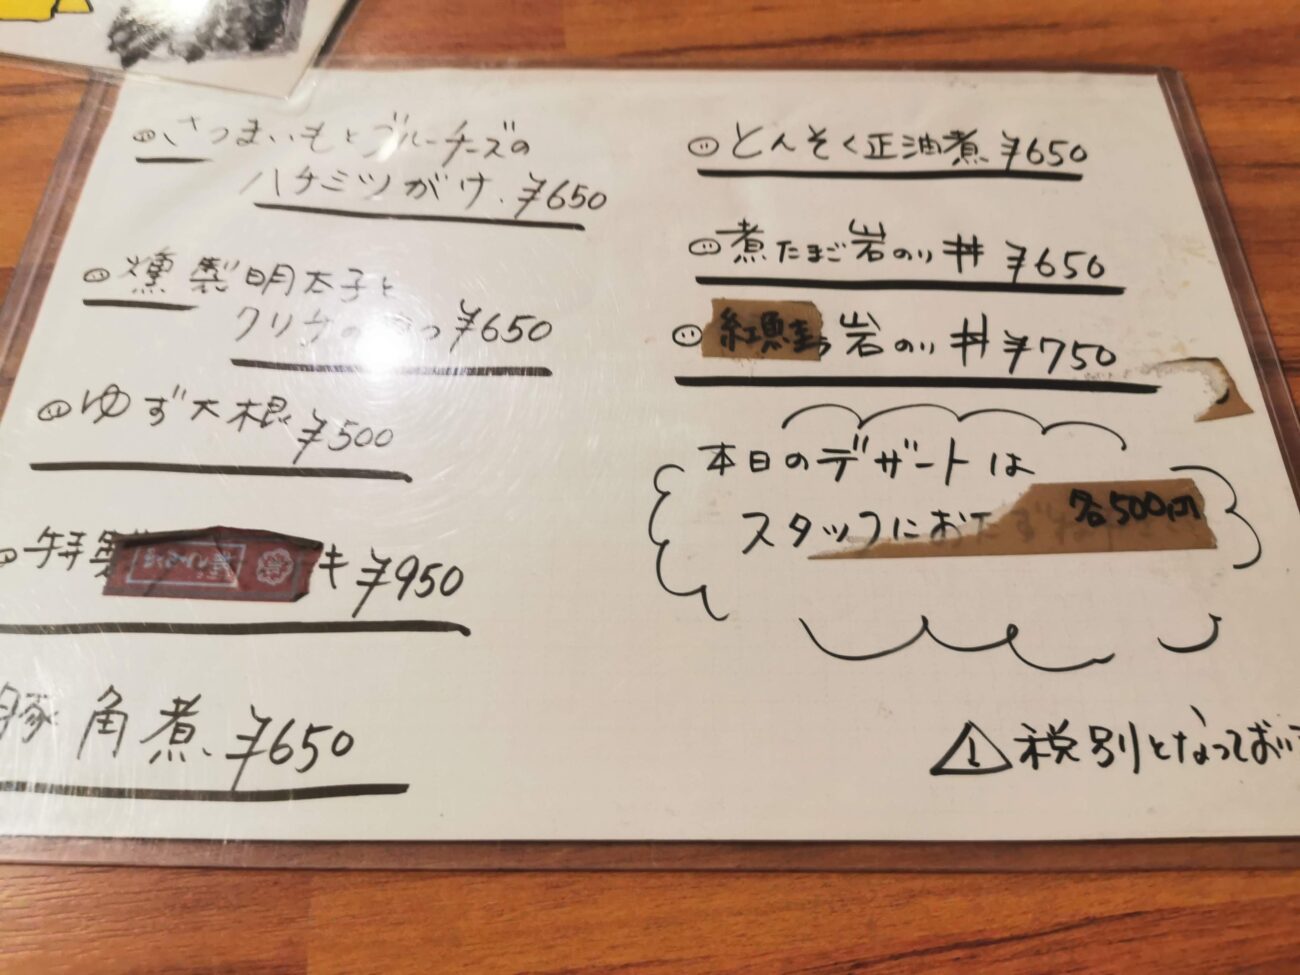 さつまいもとブルーチーズの
ハチミツがけ. ¥650
燻製明太子と
クリ ¥650
ゆず大根 ¥500
特製 キ ¥950
豚角煮 ¥650
とんそく正油煮 ¥650
煮たまご岩のり丼 ¥650
紅鮭 岩のり丼 ¥750
本日のデザートは
スタッフにおたずね
各500円
税別となってお